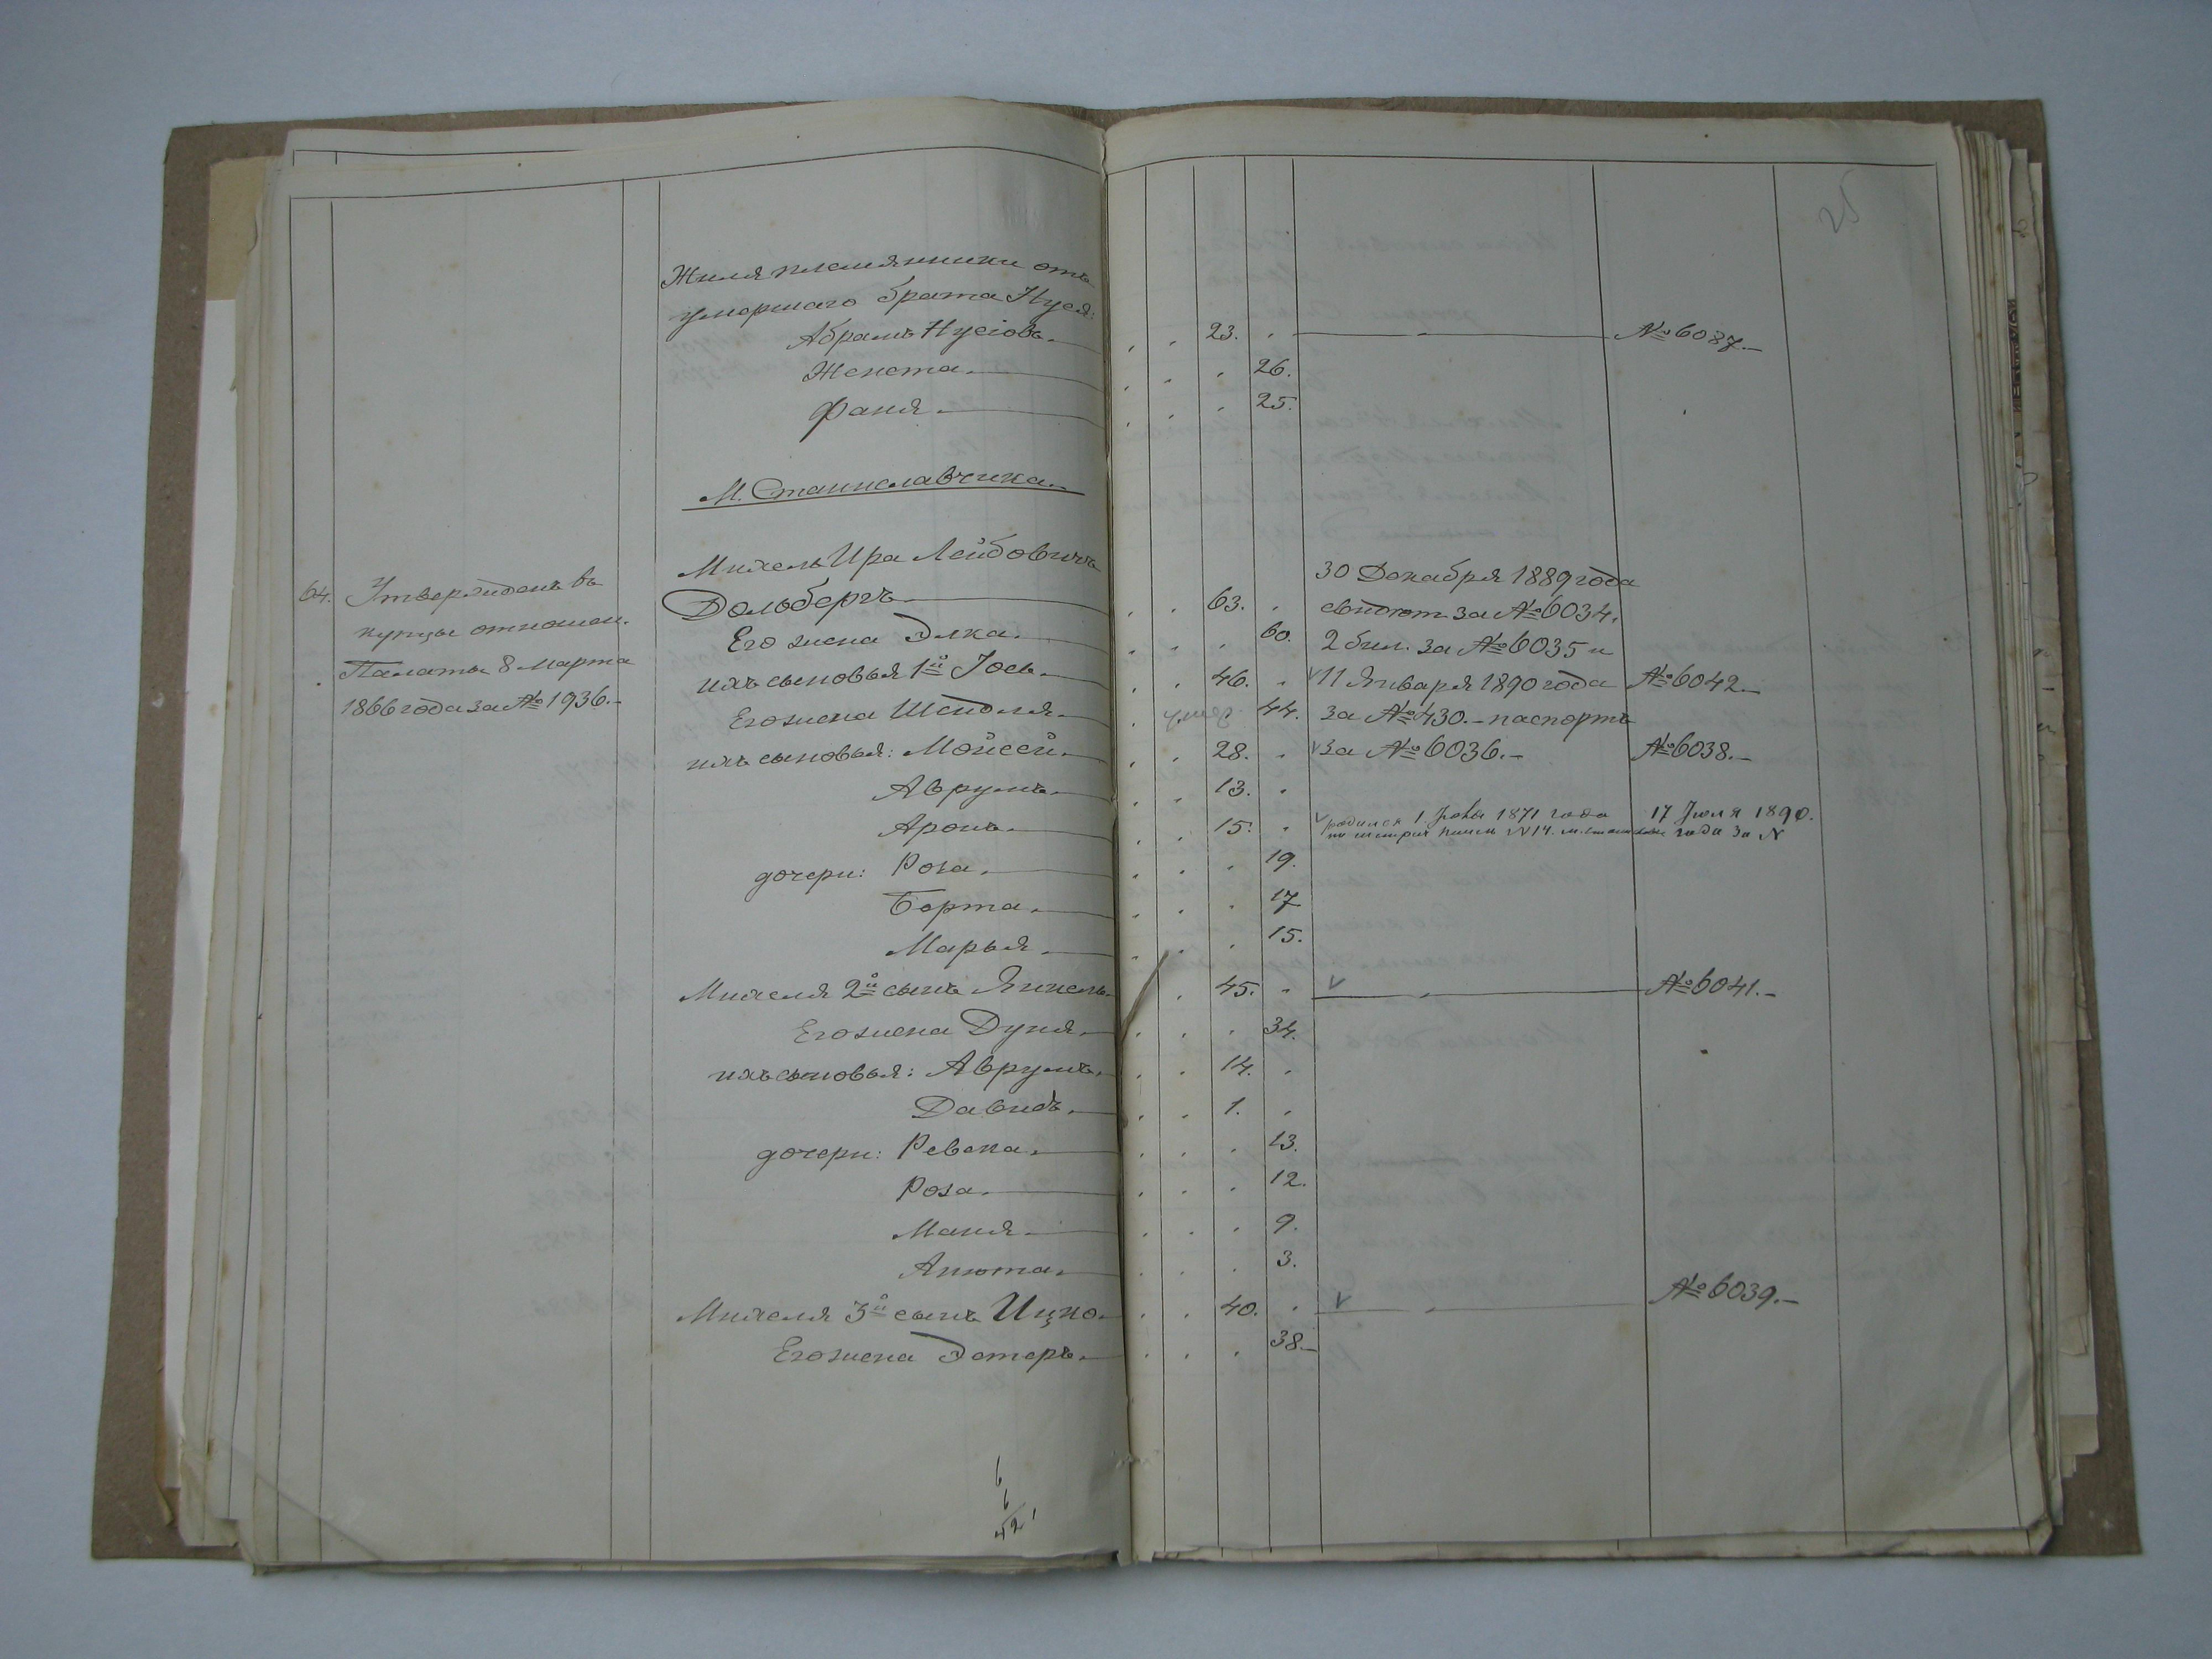 25
Жиля племянники отъ
умершаго брата Нуся:
Абрамъ Нусіовъ. 23. №6087.
Женета. 26.
Фаня. 25.
М. Станиславчика.
64. Утвержденъ въ купцы отношен. Палаты 8 Марта 1866 года за №1936.
Михель Ира Лейбовичъ 30 Декабря 1889 года
Дольбергъ 63. за №6034.
Его жена Элка. 60. 2 бил. за №6035 и
ихъ сыновья 1й Іось. 46. 11 Января 1890 года №6042.
Его жена 44. за №430. паспортъ
ихъ сыновья: Мойсей. 28. за №6036. №6038.
Аврумъ. 13.
Аронъ. 15. родился 1871 года 17 Іюля 1890. года за N
дочери: Роза. 19.
Берта. 17
Марья. 15.
Михеля 2й сынъ Янкель. 45. №6041.
Его жена Дуня. 34.
ихъ сыновья: Аврумъ. 14.
Давидъ. 1.
дочери: Ревека. 13.
Роза. 12.
Маня. 9.
Анюта. 3.
Михеля 3й сынъ Ицко. 40. №6039.
Его жена Эстеръ. 38.